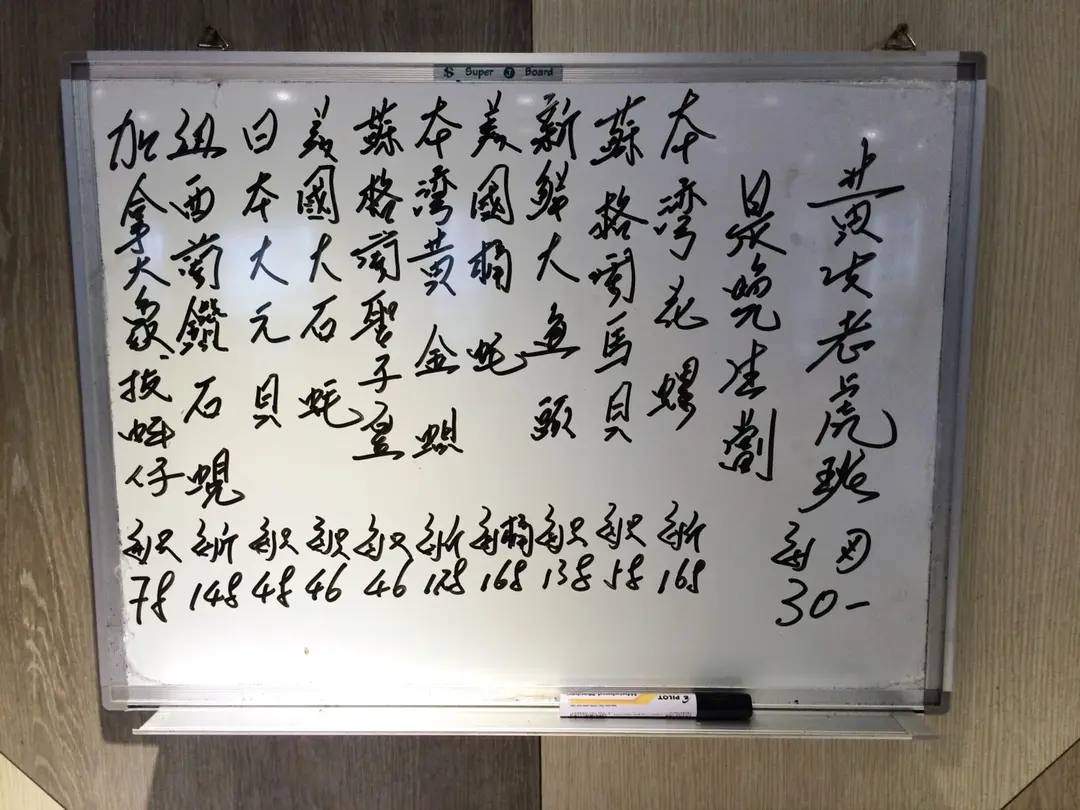 黄皮老虎斑 每両 30-
是晚生劏
本湾花螺 每斤 168
蘇格蘭馬貝 每只 58
新鮮大魚頭 每只 138
美國桶蚝 每桶 168
本湾黄金蜆 每斤 128
蘇格蘭聖子皇 每只 46
美國大石蚝 每只 46
日本大元貝 每只 48
紐西蘭鑽石蜆 每斤 148
加拿大象拔蚌仔 每只 78
Super Board
PILOT